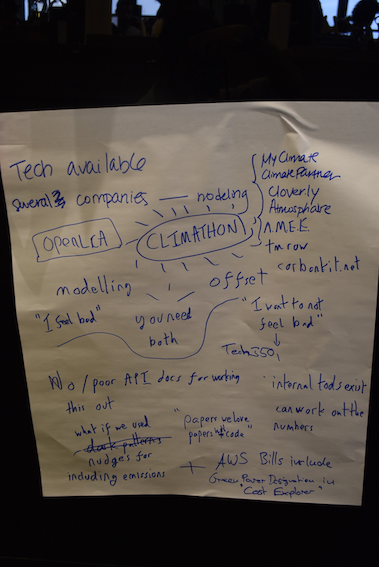 Tech available
several companies — modeling
MyClimate
ClimatePartner
Cloverly
Atmosphaire
A.M.E.E
tmrow
OPENLCA
CLIMATHON
carbonkit.net
modelling
offset
"I feel bad"
you need
both
"I want to not
feel bad"
No / poor API docs for working
this out
internal tools exist
can work out the
numbers
what if we used
dark patterns
nudges for
including emissions
"papers we love
papers $ code"
+ AWS Bills include
Green Power Designation in
"Cost Explorer"